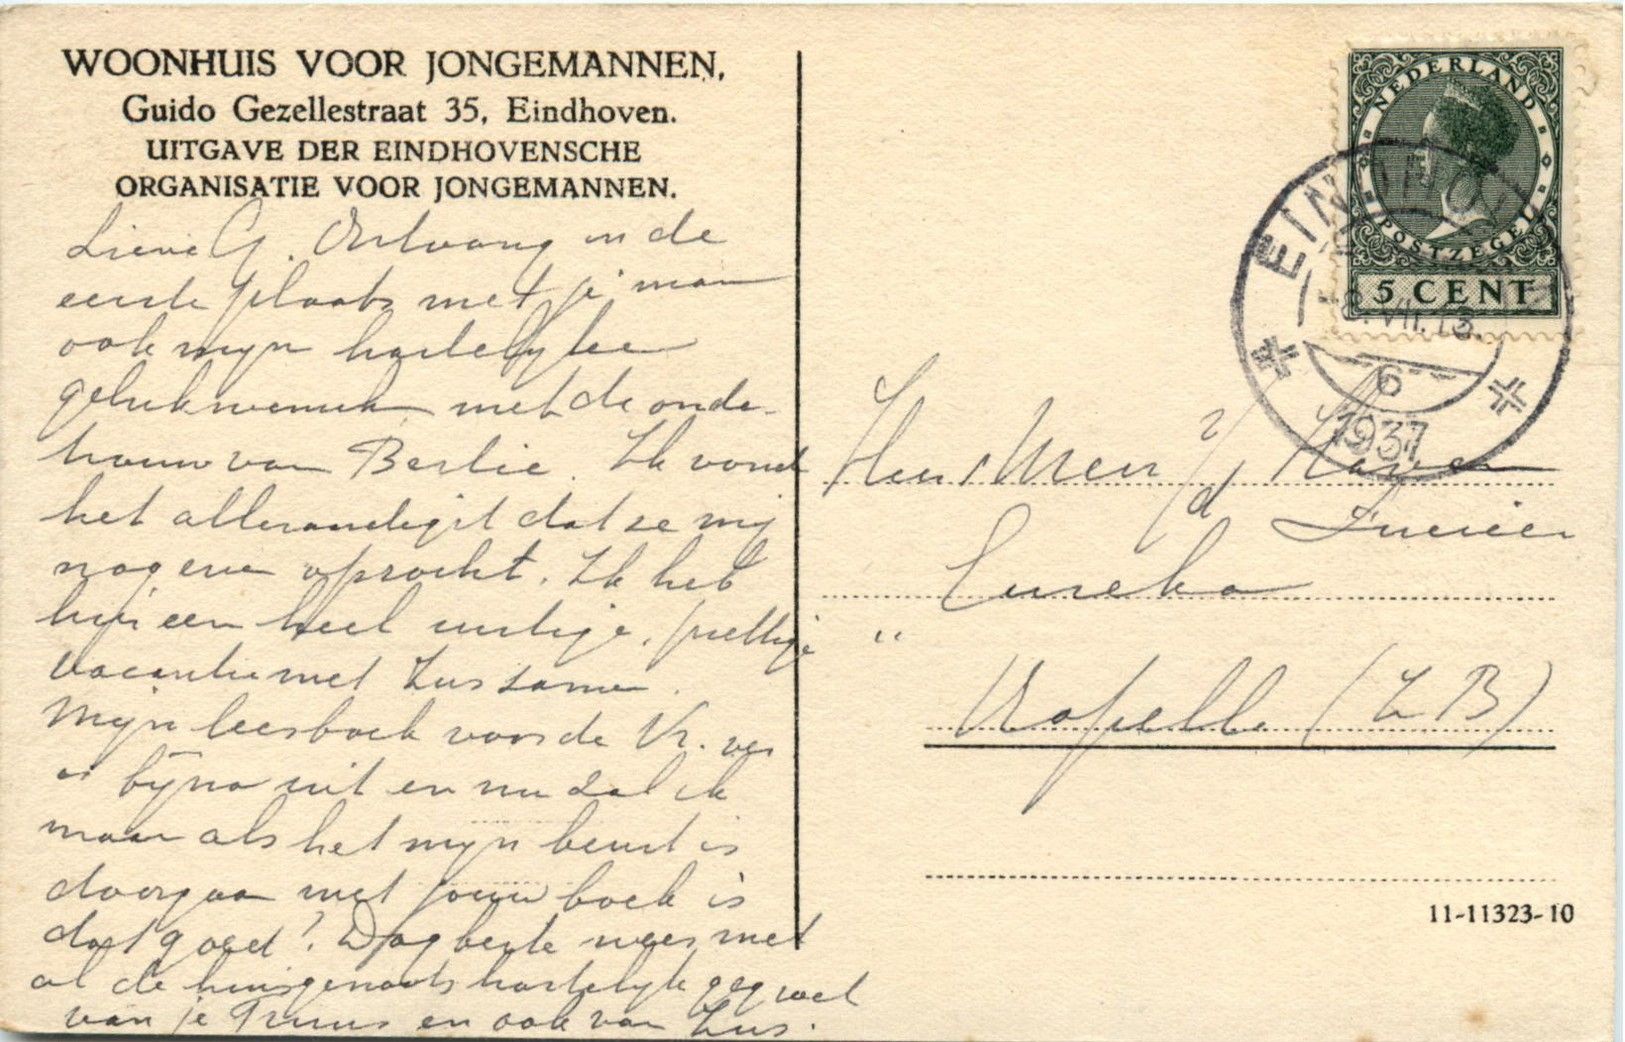 WOONHUIS VOOR JONGEMANNEN,
Guido Gezellestraat 35, Eindhoven.
UITGAVE DER EINDHOVENSCHE
ORGANISATIE VOOR JONGEMANNEN.
Lieve G. Ontvang in de
eerste plaats met je man
ook mijn hartelijke
gelukwensch met de onder-
trouw van Bertie. Ik vond
het alleraardigst dat ze mij
nog even opzocht. Ik heb
hier een heel rustige, prettige
vacantie met Zus samen.
Mijn leesboek voor de Vr. ver
" bijna uit en nu zal ik
maar als het mijn beurt is
doorgaan met jouw boek is
dat goed? Dag beste wees met
al de huisgenoots hartelijk gegroet
van je Truus en ook van Zus.
NEDERLAND
POSTZEGEL
5 CENT
EINDHOVEN
8.VII.13
6
1937
Heer & Mevr v/d
Eureka
"
Kapelle (Z B)
11-11323-10